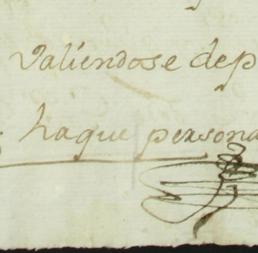 Valiendose dep
haque persona